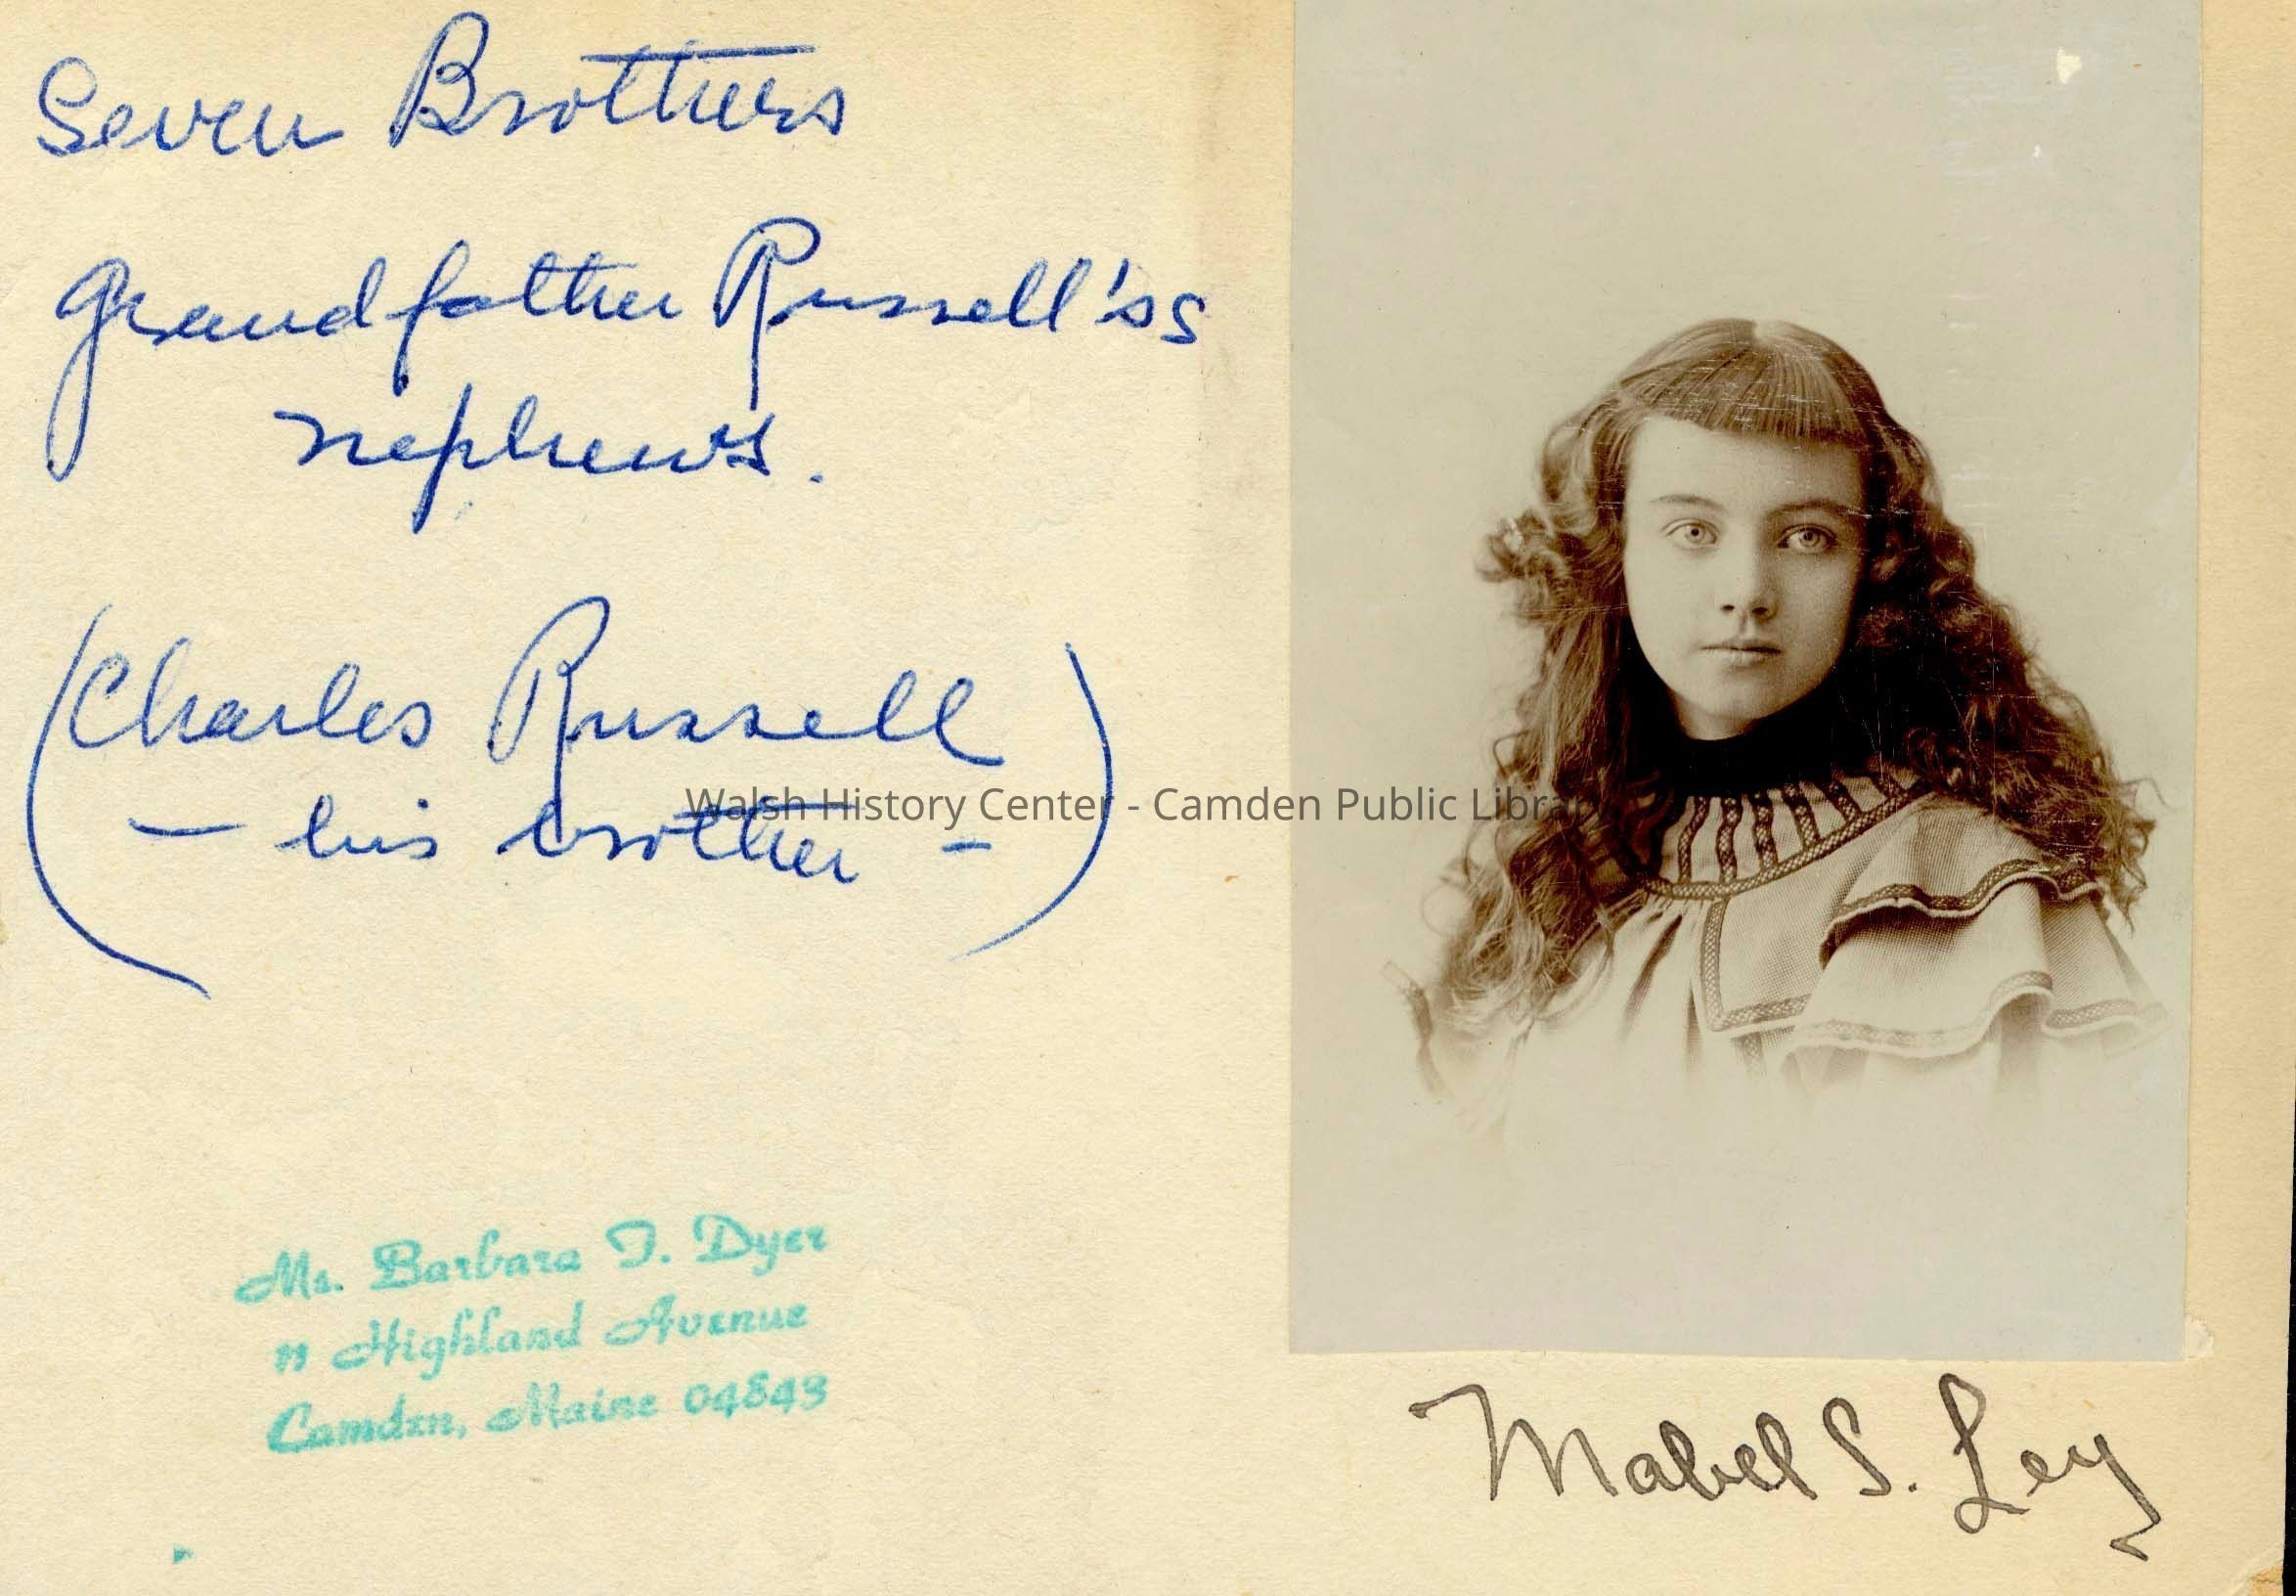 Seven Brothers
Grandfather Russell's s
nephews.
(Charles Russell
- his brother -)
Walsh History Center - Camden Public Library
Ms. Barbara F. Dyer
11 Highland Avenue
Camden, Maine 04843
Mabel S. Ley